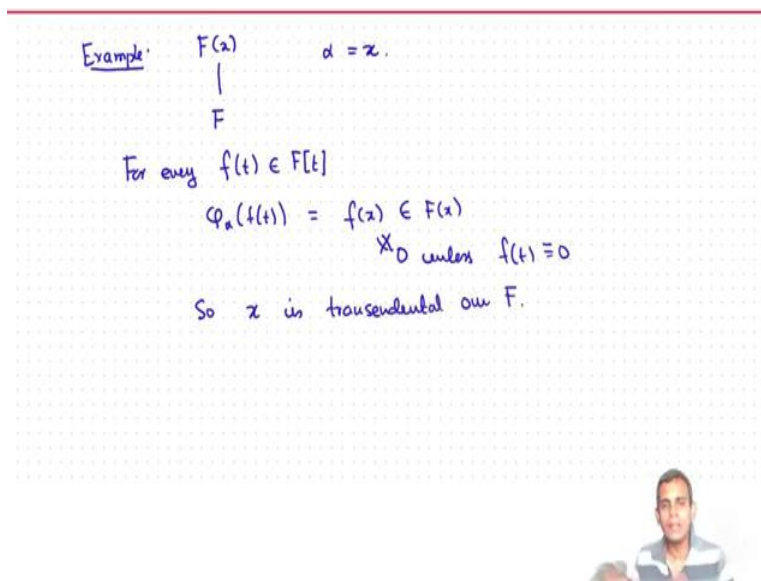 Example: F(x) α = x.
|
F
For every f(t) ∈ F[t]
φ_α(f(t)) = f(x) ∈ F(x)
≠ 0 unless f(t) ≡ 0
So x is transendental over F.